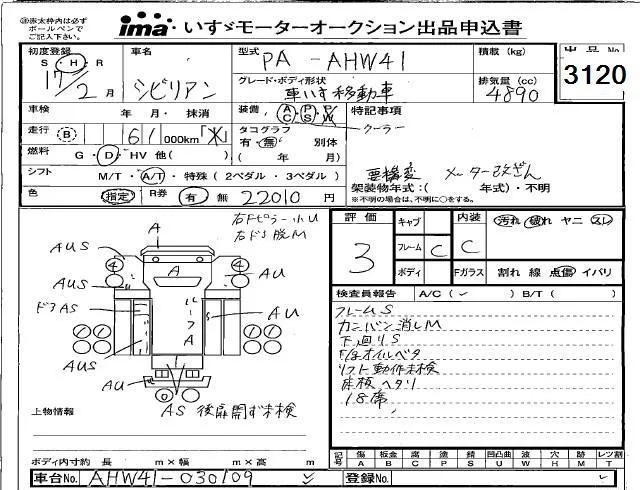 ※赤太枠内は必ず
ボールペンで
ご記入下さい。
ima いすゞモーターオークション出品申込書
初度登録 車名 型式 PA-AHW41 積載(kg) 出品No
S・H・R シビリアン グレード・ボディ形状 排気量(cc) 3120
17/2月 車いす移動車 4890
車検 年 月・ 抹消 装備 AC PS PW 特記事項
走行 B 61000km「メ」 タコグラフ クーラー
有・無 別体
燃料 G・D・HV 他( ) ( 年 月)
シフト M/T・A/T・特殊(2ペダル・3ペダル) 要構変 メーター改ざん
架装物年式:( 年式)・不明
色 指定 R券 有 無 22010円 ※不明の場合は、不明に○をする。
右Fピラー小U
右ドア脱M
A
AUS
4 A 4 AU
AUS
ドアAS ルーフA AU
AUS
AU
AS 後扉開ず未検
上物情報
ボディ内寸約 長 m×幅 m×高 m
車台No. AHW41-030109
評価 3
キャブ
フレーム C
ボディ
内装 C
Fガラス
汚れ・破れ・ヤニ・スレ
割れ 線 点傷 イバリ
検査員報告 A/C( ✓ ) B/T( )
フレームS
カンバン消しM
下廻りS
リフト動作未検
床板ヘタリ
18席
記号 傷 板金 腐 塗 錆 凹凸曲 波 穴 跡 レツ割
A B C P S U W H M T
登録No.